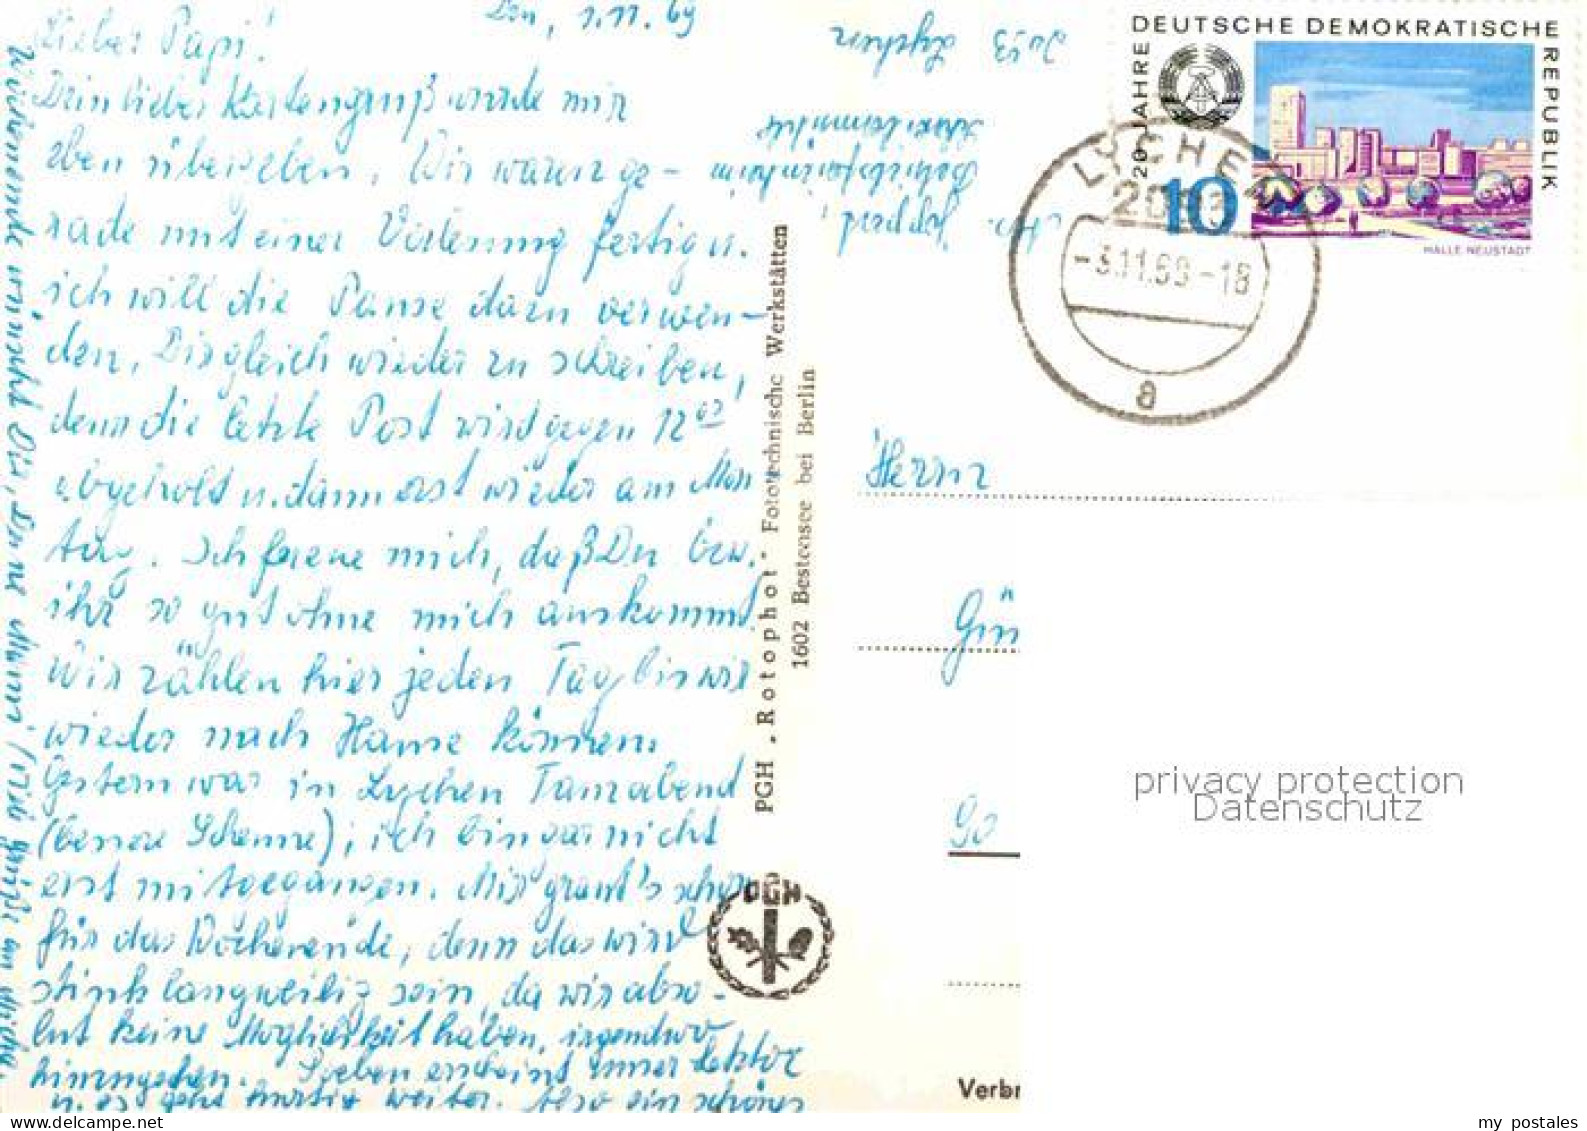 Lieber Papi!
Dein lieber Kartengruß wurde mir
eben übergeben. Wir waren ge-
rade mit einer Vorlesung fertig u.
ich will die Pause dazu verwen-
den, Dir gleich wieder zu schreiben,
denn die letzte Post wird gegen 12⁰⁰
abgeholt u. dann erst wieder am Mon
tag. Ich freue mich, daß Du bzw.
ihr so gut ohne mich auskommt.
Wir zählen hier jeden Tag bis wir
wieder nach Hause können.
Gestern war in Lychen Tanzabend
(bessere Scheune); ich bin gar nicht
erst mitgegangen. Mir graut's schon
für das Wochenende, denn das wird
stinklangweilig sein, da wir abso-
lut keine Möglichkeit haben, irgendwo
hinzugehen. Soeben erscheint unser Lektor
u. es geht hurtig weiter. Also ein schönes
Wochenende wünscht Dir, Deine
, 1.11.69
2093 Lychen
DEUTSCHE DEMOKRATISCHE
REPUBLIK
20 JAHRE
10
HALLE-NEUSTADT
LYCHEN
2093
-3.11.69-18
a
PGH „Rotophot" Fototechnische Werkstätten
1602 Bestensee bei Berlin
PGH
Herrn
Gün
Go
privacy protection
Datenschutz
Verbr
my postales